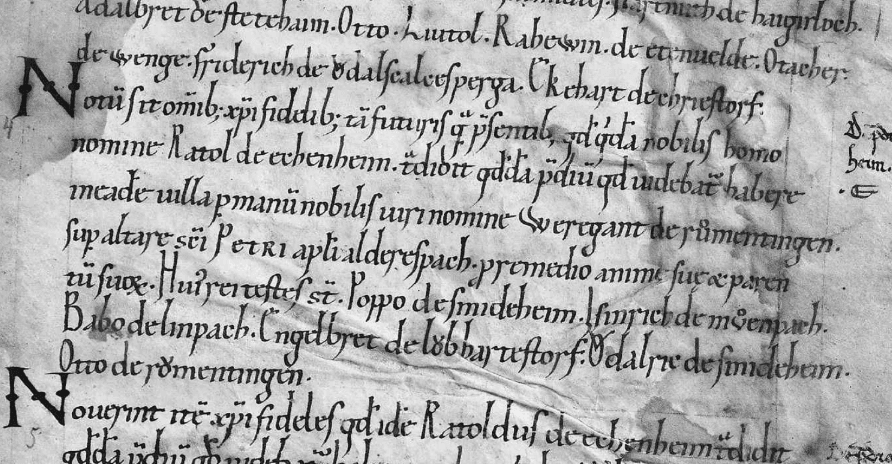 Adalbret de stetehaim. Otto. Liutol. Rabewin. de etenuelde. Otacher.
de wenge. friderich de vͦdalscalcesperga. Ekehart de chriestorf.
Notū sit om̄ib; xp̄i fidelib; tā futuris q̄ p̄sentib; qd̄ qdā nobilis homo
nomine Ratol de echenheim. t̄didit qd̄dā p̄diū qd uidebat̄ habere
in eadē uilla p manū nobilis uiri nomine Weregant de rvͦmentingen.
sup altare sc̄i PETRI apl̄i alderespach. p remedio anime suę ꝫ paren
tū suoꝝ. Hui᷒ rei testes st̄. Poppo de smideheim. Isinrich de mvͦenpach.
Babo de linpach. Engelbret de lvͦbhartestorf. Vͦdalric de smideheim.
Otto de rvͦmentingen.
Nouerint itē xp̄i fideles qd̄ idē Ratoldus de echenheim t̄didit
qd̄dā p̄diū qd̄
heim.
4
5